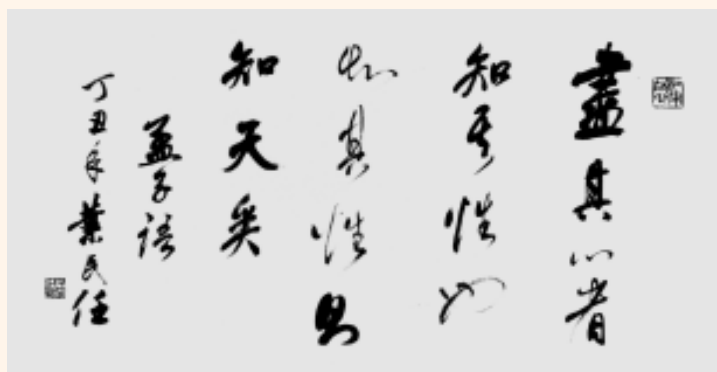 盡其心者
知其性也
知其性則
知天矣
孟子語
丁丑年葉民任